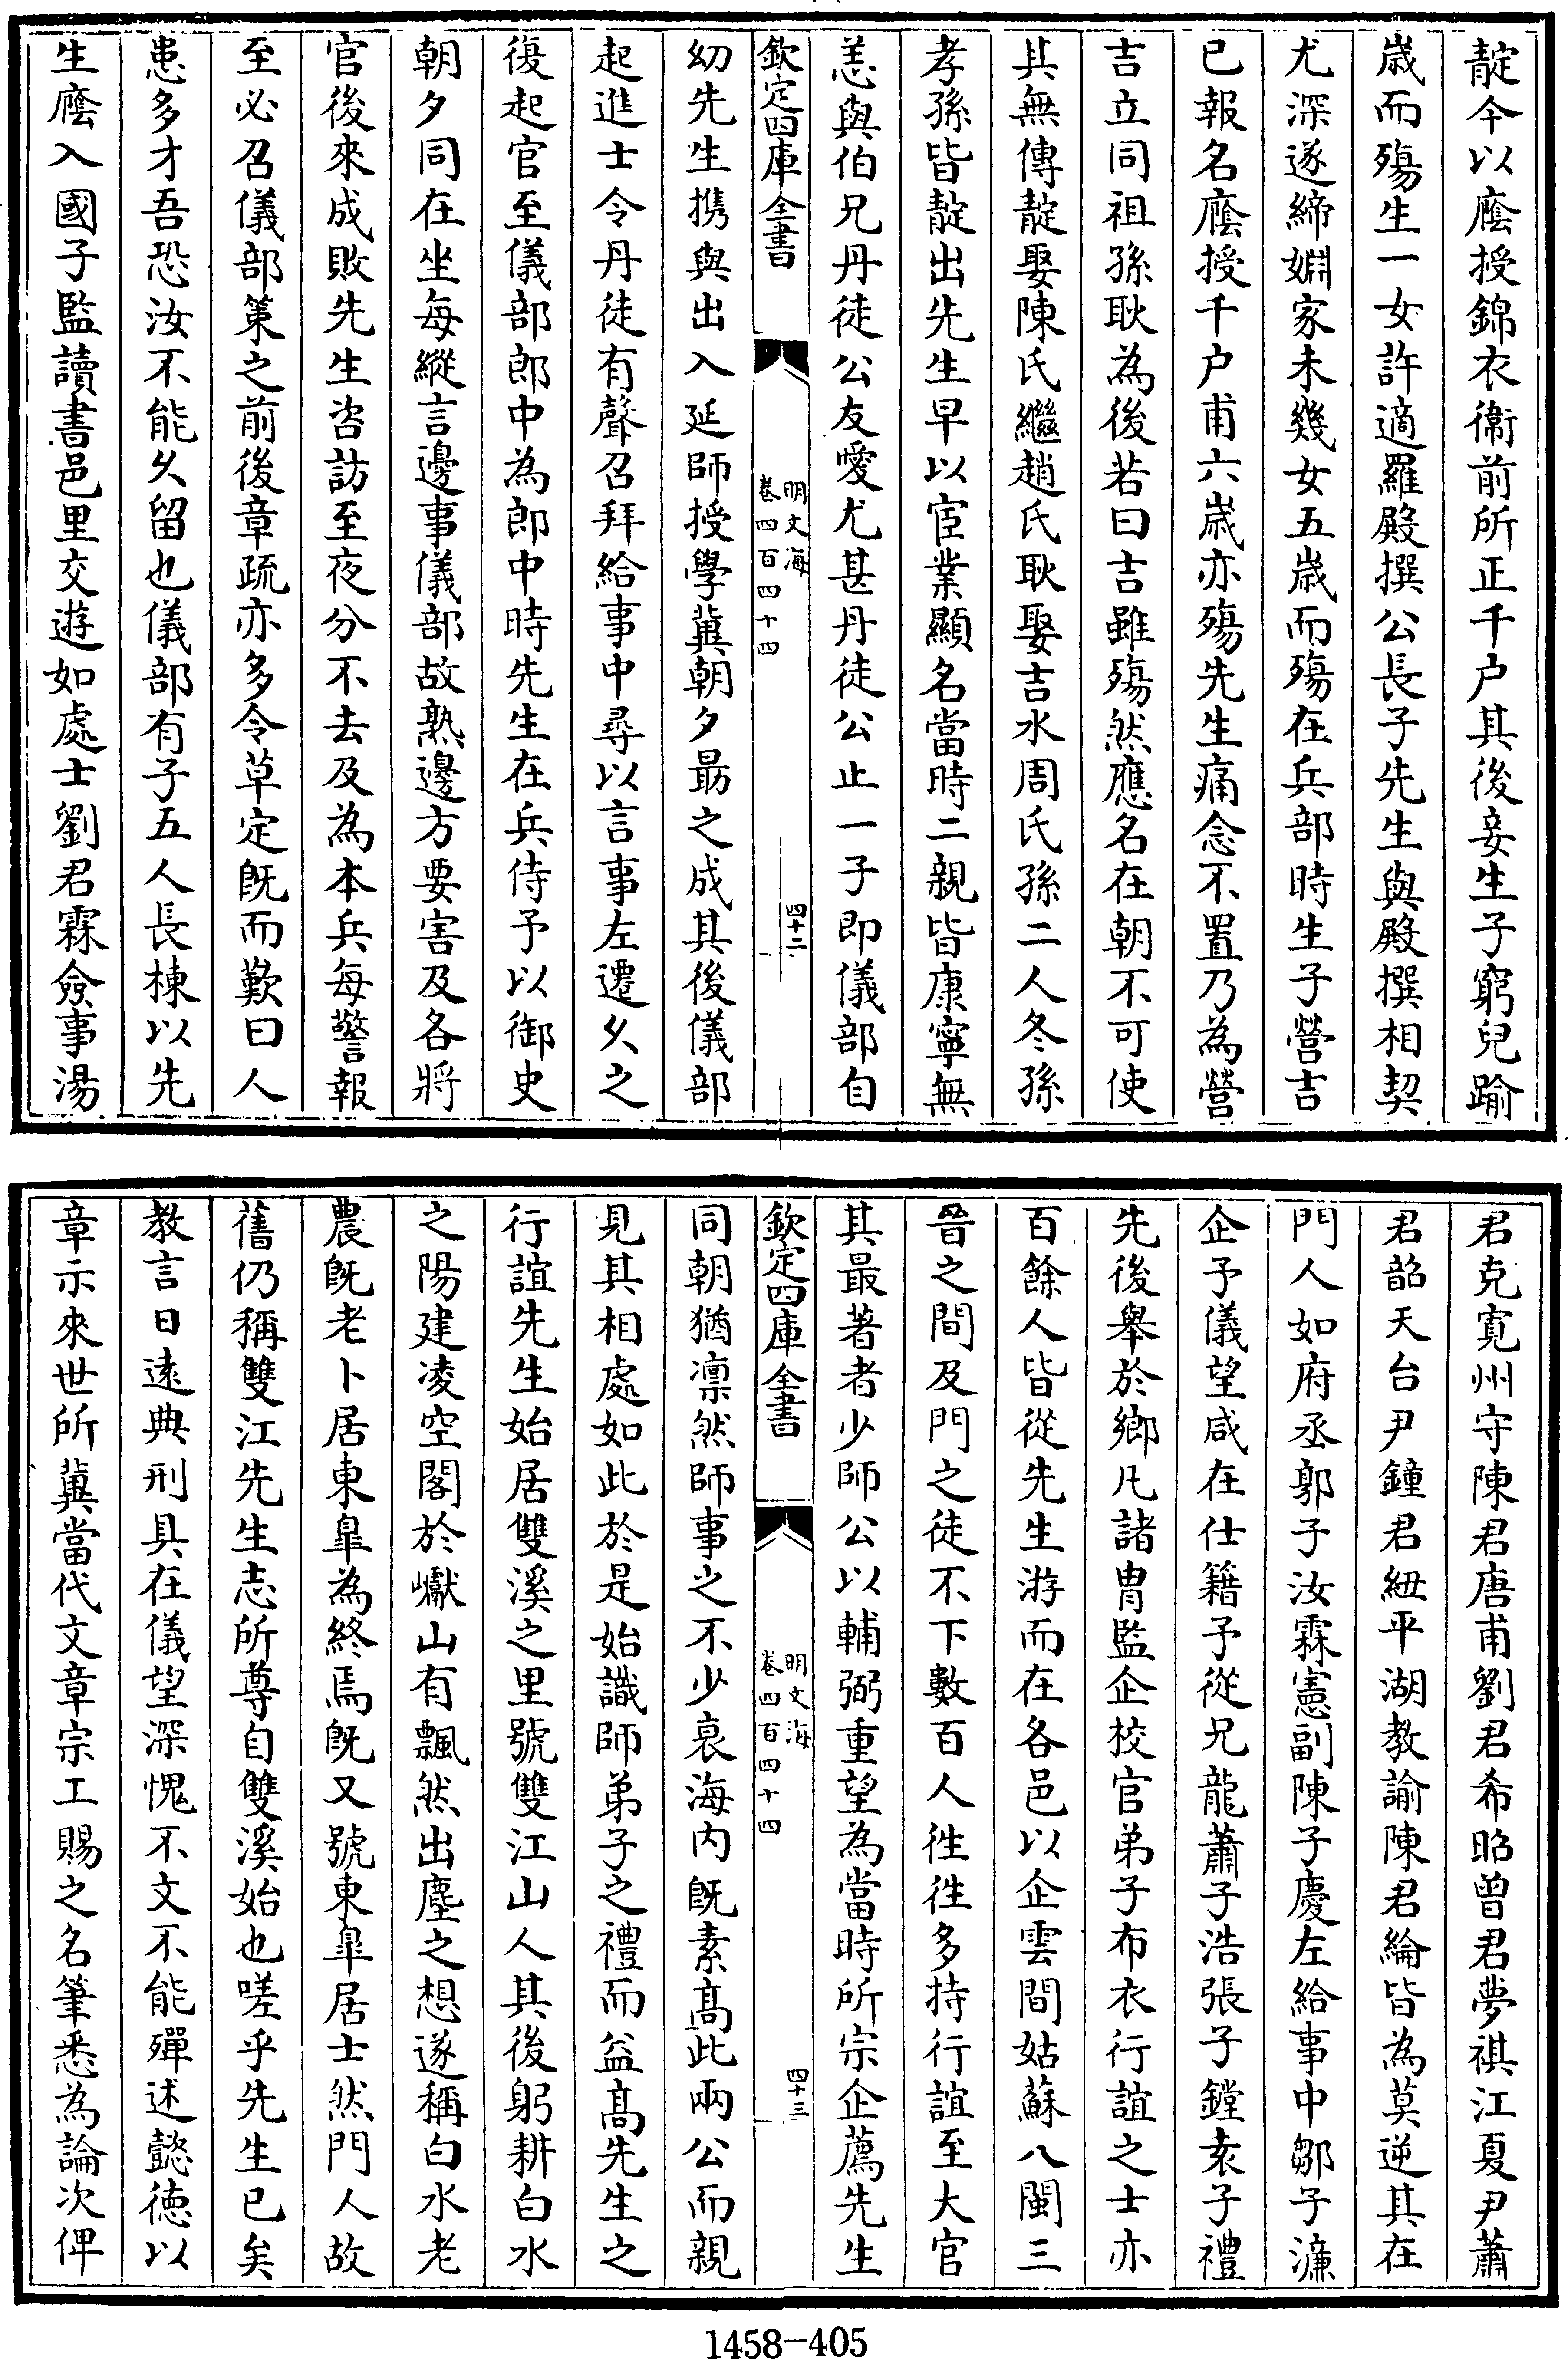 靛今以廕授錦衣衞前所正千户其後妾生子窮兒踰
嵗而殤生一女許適羅殿撰公長子先生與殿撰相契
尤深遂締婣家未幾女五嵗而殤在兵部時生子營吉
已報名廕授千户甫六嵗亦殤先生痛念不置乃為營
吉立同祖孫耿為後若曰吉雖殤然應名在朝不可使
其無傳靛娶陳氏繼趙氏耿娶吉水周氏孫二人冬孫
孝孫皆靛出先生早以宦業顯名當時二親皆康寧無
恙與伯兄丹徒公友愛尤甚丹徒公止一子即儀部自
欽定四庫全書
明文海
卷四百四十四
四十二
幼先生携與出入延師授學冀朝夕勗之成其後儀部
起進士令丹徒有聲召拜給事中尋以言事左遷乆之
復起官至儀部郎中為郎中時先生在兵侍予以御史
朝夕同在坐每縱言邊事儀部故熟邊方要害及各將
官後來成敗先生咨訪至夜分不去及為本兵每警報
至必召儀部策之前後章疏亦多令草定既而歎曰人
患多才吾恐汝不能乆留也儀部有子五人長棟以先
生廕入國子監讀書邑里交遊如處士劉君霖僉事湯
君克寛州守陳君唐甫劉君希昭曾君夢祺江夏尹蕭
君韶天台尹鐘君紐平湖教諭陳君綸皆為莫逆其在
門人如府丞郭子汝霖憲副陳子慶左給事中鄒子濂
企予儀望咸在仕籍予從兄龍蕭子浩張子鏜袁子禮
先後舉於鄉凡諸胄監企校官弟子布衣行誼之士亦
百餘人皆從先生游而在各邑以企雲間姑蘇八閩三
晉之間及門之徒不下數百人徃徃多持行誼至大官
其最著者少師公以輔弼重望為當時所宗企薦先生
欽定四庫全書
明文海
卷四百四十四
四十三
同朝猶凛然師事之不少衰海内既素髙此兩公而親
見其相處如此於是始識師弟子之禮而益髙先生之
行誼先生始居雙溪之里號雙江山人其後躬耕白水
之陽建凌空閣於巘山有飄然出塵之想遂稱白水老
農既老卜居東臯為終焉既又號東臯居士然門人故
舊仍稱雙江先生志所尊自雙溪始也嗟乎先生已矣
教言日逺典刑具在儀望深愧不文不能殫述懿徳以
章示來世所冀當代文章宗工賜之名筆悉為論次俾
1458-405